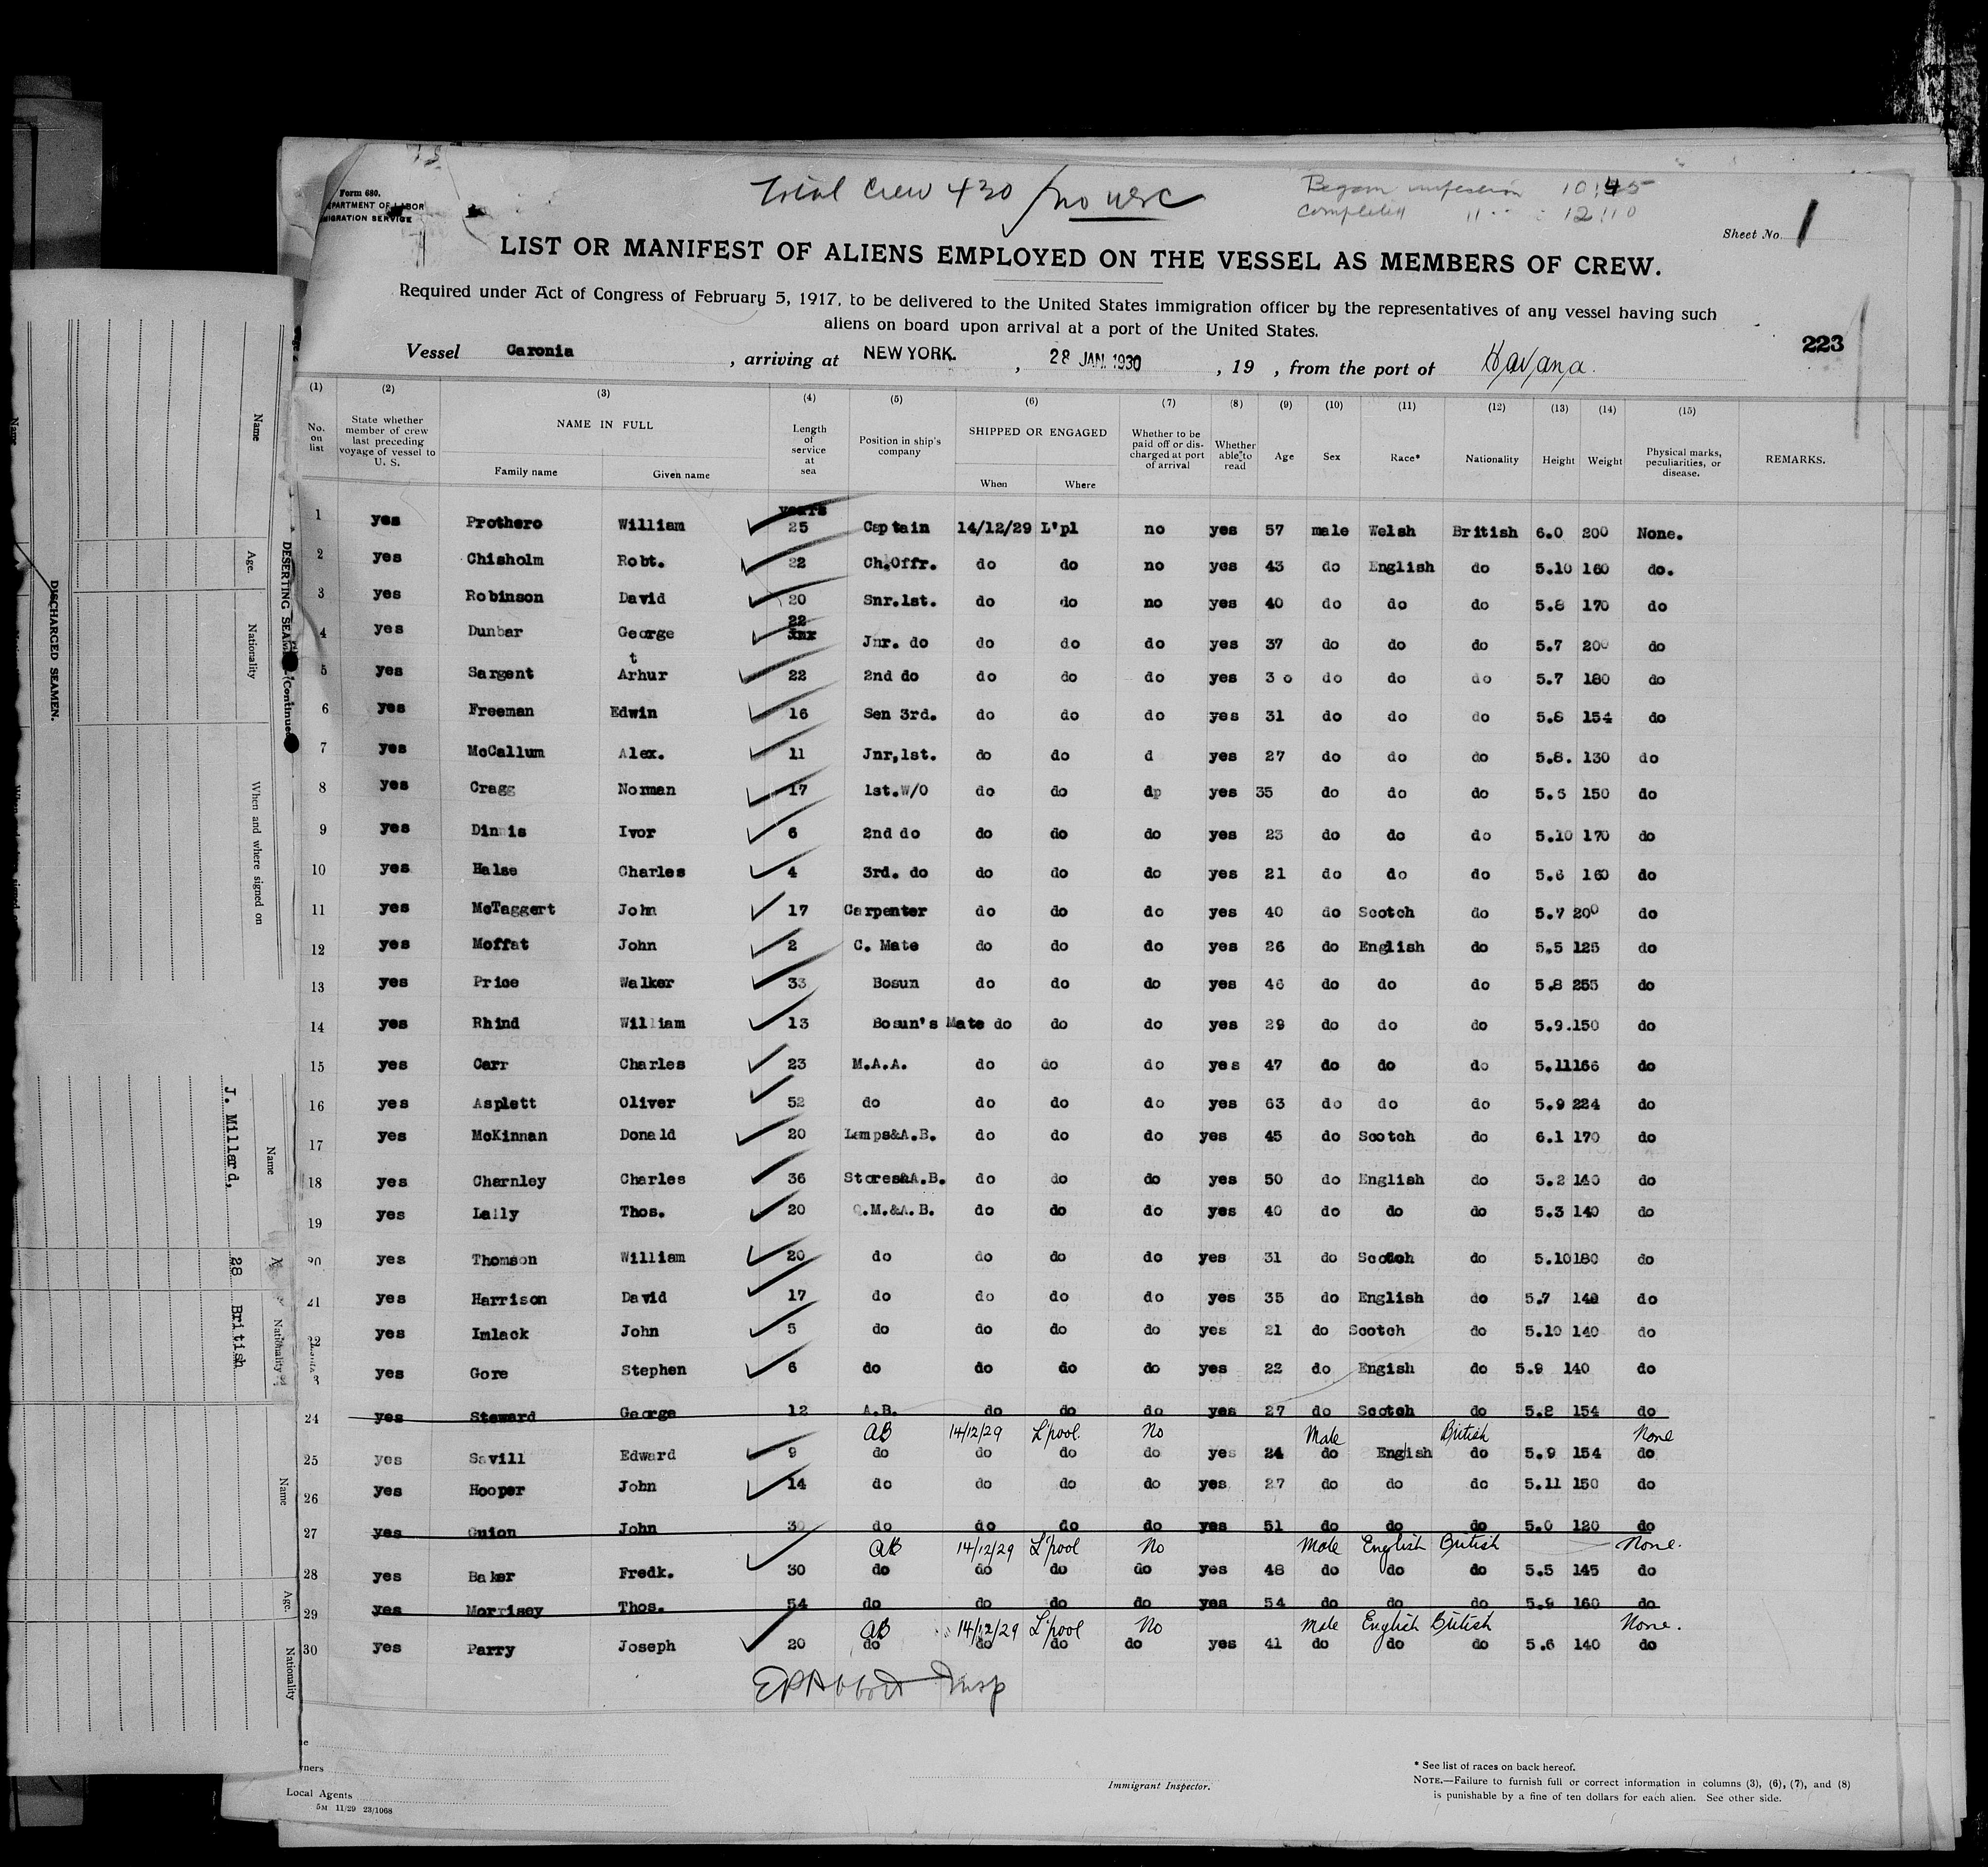 Form 680.
DEPARTMENT OF LABOR
IMMIGRATION SERVICE
Total Crew 430 / no
Began inspection 10:45
Completed " 12:10
Sheet No. 1
LIST OR MANIFEST OF ALIENS EMPLOYED ON THE VESSEL AS MEMBERS OF CREW.
Required under Act of Congress of February 5, 1917, to be delivered to the United States immigration officer by the representatives of any vessel having such
aliens on board upon arrival at a port of the United States.
223
Vessel Caronia , arriving at NEW YORK. , 28 JAN. 1930 , 19 , from the port of Havana.
(1) (2) (3) (4) (5) (6) (7) (8) (9) (10) (11) (12) (13) (14) (15)
No. on list State whether member of crew last preceding voyage of vessel to U. S. NAME IN FULL Family name Given name Length of service at sea Position in ship's company SHIPPED OR ENGAGED When Where Whether to be paid off or discharged at port of arrival Whether able to read Age Sex Race* Nationality Height Weight Physical marks, peculiarities, or disease. REMARKS.
years
1 yes Prothero William 25 Captain 14/12/29 L'pl no yes 57 male Welsh British 6.0 200 None.
2 yes Chisholm Robt. 22 Ch.Offr. do do no yes 43 do English do 5.10 160 do.
3 yes Robinson David 20 Snr.1st. do do no yes 40 do do do 5.8 170 do
4 yes Dunbar George 22 Jnr. do do do do yes 37 do do do 5.7 200 do
t
5 yes Sargent Arhur 22 2nd do do do do yes 3o do do do 5.7 180 do
6 yes Freeman Edwin 16 Sen 3rd. do do do yes 31 do do do 5.8 154 do
7 yes McCallum Alex. 11 Jnr,1st. do do d yes 27 do do do 5.8. 130 do
8 yes Cragg Norman 17 1st.W/O do do dp yes 35 do do do 5.6 150 do
9 yes Dinnis Ivor 6 2nd do do do do yes 23 do do do 5.10 170 do
10 yes Halse Charles 4 3rd. do do do do yes 21 do do do 5.6 160 do
11 yes McTaggert John 17 Carpenter do do do yes 40 do Scotch do 5.7 200 do
12 yes Moffat John 2 C. Mate do do do yes 26 do English do 5.5 125 do
13 yes Price Walker 33 Bosun do do do yes 46 do do do 5.8 255 do
14 yes Rhind William 13 Bosun's Mate do do do yes 29 do do do 5.9.150 do
15 yes Carr Charles 23 M.A.A. do do do yes 47 do do do 5.11166 do
16 yes Asplett Oliver 52 do do do do yes 63 do do do 5.9 224 do
17 yes McKinnan Donald 20 Lamps&A.B. do do do yes 45 do Scotch do 6.1 170 do
18 yes Charnley Charles 36 Stores&A.B. do do do yes 50 do English do 5.2 140 do
19 yes Lally Thos. 20 Q.M.&A.B. do do do yes 40 do do do 5.3 140 do
20 yes Thomson William 20 do do do do yes 31 do Scotch do 5.10180 do
21 yes Harrison David 17 do do do do yes 35 do English do 5.7 140 do
22 yes Imlack John 5 do do do do yes 21 do Scotch do 5.10 140 do
3 yes Gore Stephen 6 do do do do yes 22 do Engish do 5.9 140 do
24 yes Steward George 12 A.B. do do do yes 27 do Scotch do 5.8 154 do
AB 14/12/29 L'pool. No Male British None
25 yes Savill Edward 9 do do do do yes 24 do Engish do 5.9 154 do
26 yes Hooper John 14 do do do do yes 27 do do do 5.11 150 do
27 yes Guion John 30 do do do do yes 51 do do do 5.0 120 do
AB 14/12/29 L'pool No Male English British None.
28 yes Baker Fredk. 30 do do do do yes 48 do do do 5.5 145 do
29 yes Morrisey Thos. 54 do do do do yes 54 do do do 5.9 160 do
AB 14/12/29 L'pool No Male English British None.
30 yes Parry Joseph 20 do do do do yes 41 do do do 5.6 140 do
EP Abbott Insp
Immigrant Inspector.
Local Agents
5M 11/29 23/1068
* See list of races on back hereof.
NOTE.—Failure to furnish full or correct information in columns (3), (6), (7), and (8)
is punishable by a fine of ten dollars for each alien. See other side.
DISCHARGED SEAMEN.
DESERTING SEAMEN (Continued
Name
Age.
Nationality
When and where signed on
Name
Nationality
J. Millard. 28 British
Name
Age.
Nationality